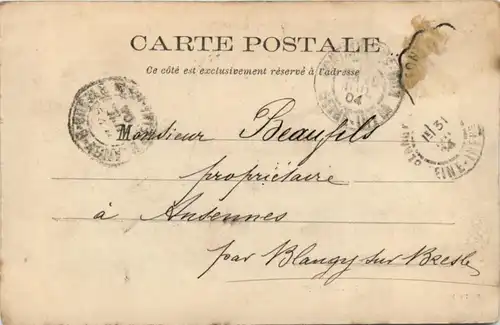 CARTE POSTALE
Ce côté est exclusivement réservé à l'adresse
04
Monsieur Beaufils
propriétaire
à Ansennes
par Blangy sur Bresle
31